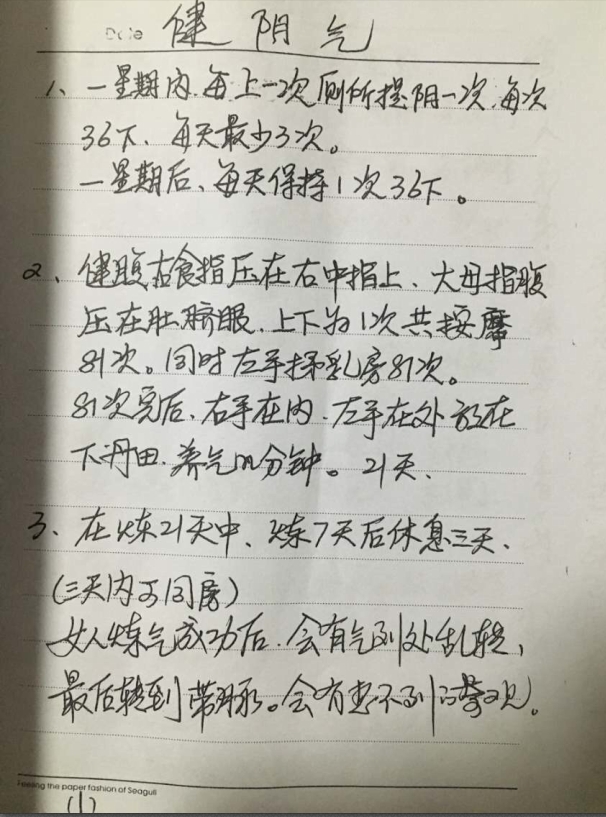 Date 健阴气
1、一星期内、每上一次厕所提阴一次,每次
36下、每天最少3次。
一星期后、每天保持1次36下。
2、健腹右食指压在右中指上、大母指腹
压在肚脐眼、上下为1次共按摩
81次。同时左手揉乳房81次。
81次完后、右手在内、左手在外放在
下丹田、养气几分钟。21天、
3、在炼21天中、炼7天后休息三天、
(三天内可同房)
女人炼气成功后、会有气到处乱转,
最后转到带脉。会有意不到的景观。
the paper fashion of Seagull
(1)